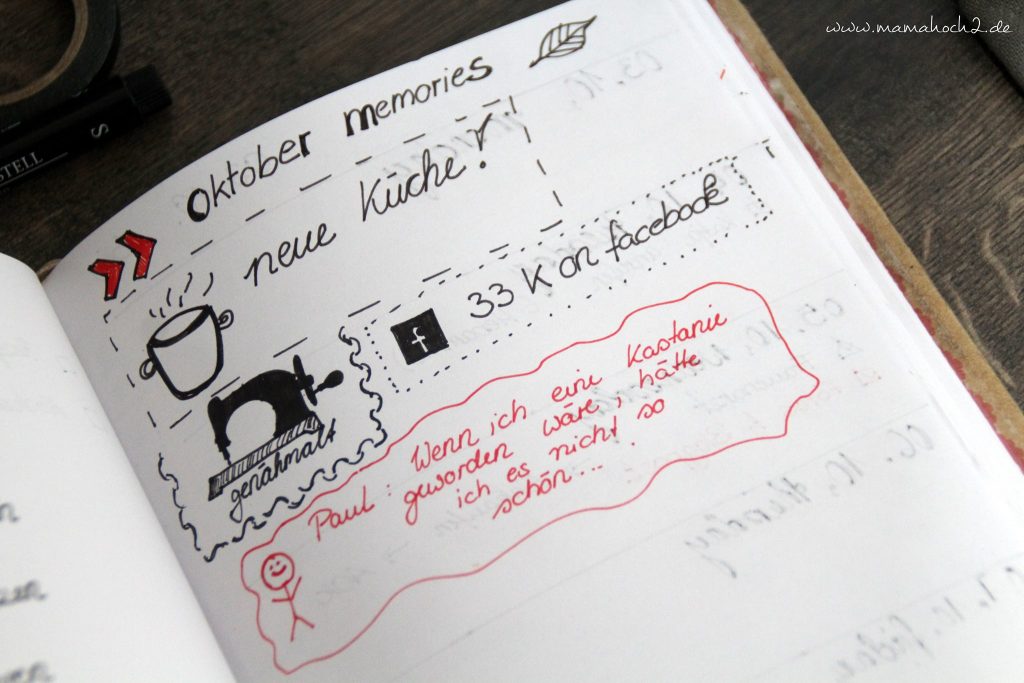 www.mamahoch2.de
S
STELL
oktober memories
neue Küche!
f
33 K on facebook
genähmalt
Paul: Wenn ich eine Kastanie
geworden wäre, hätte
ich es nicht so
schön....